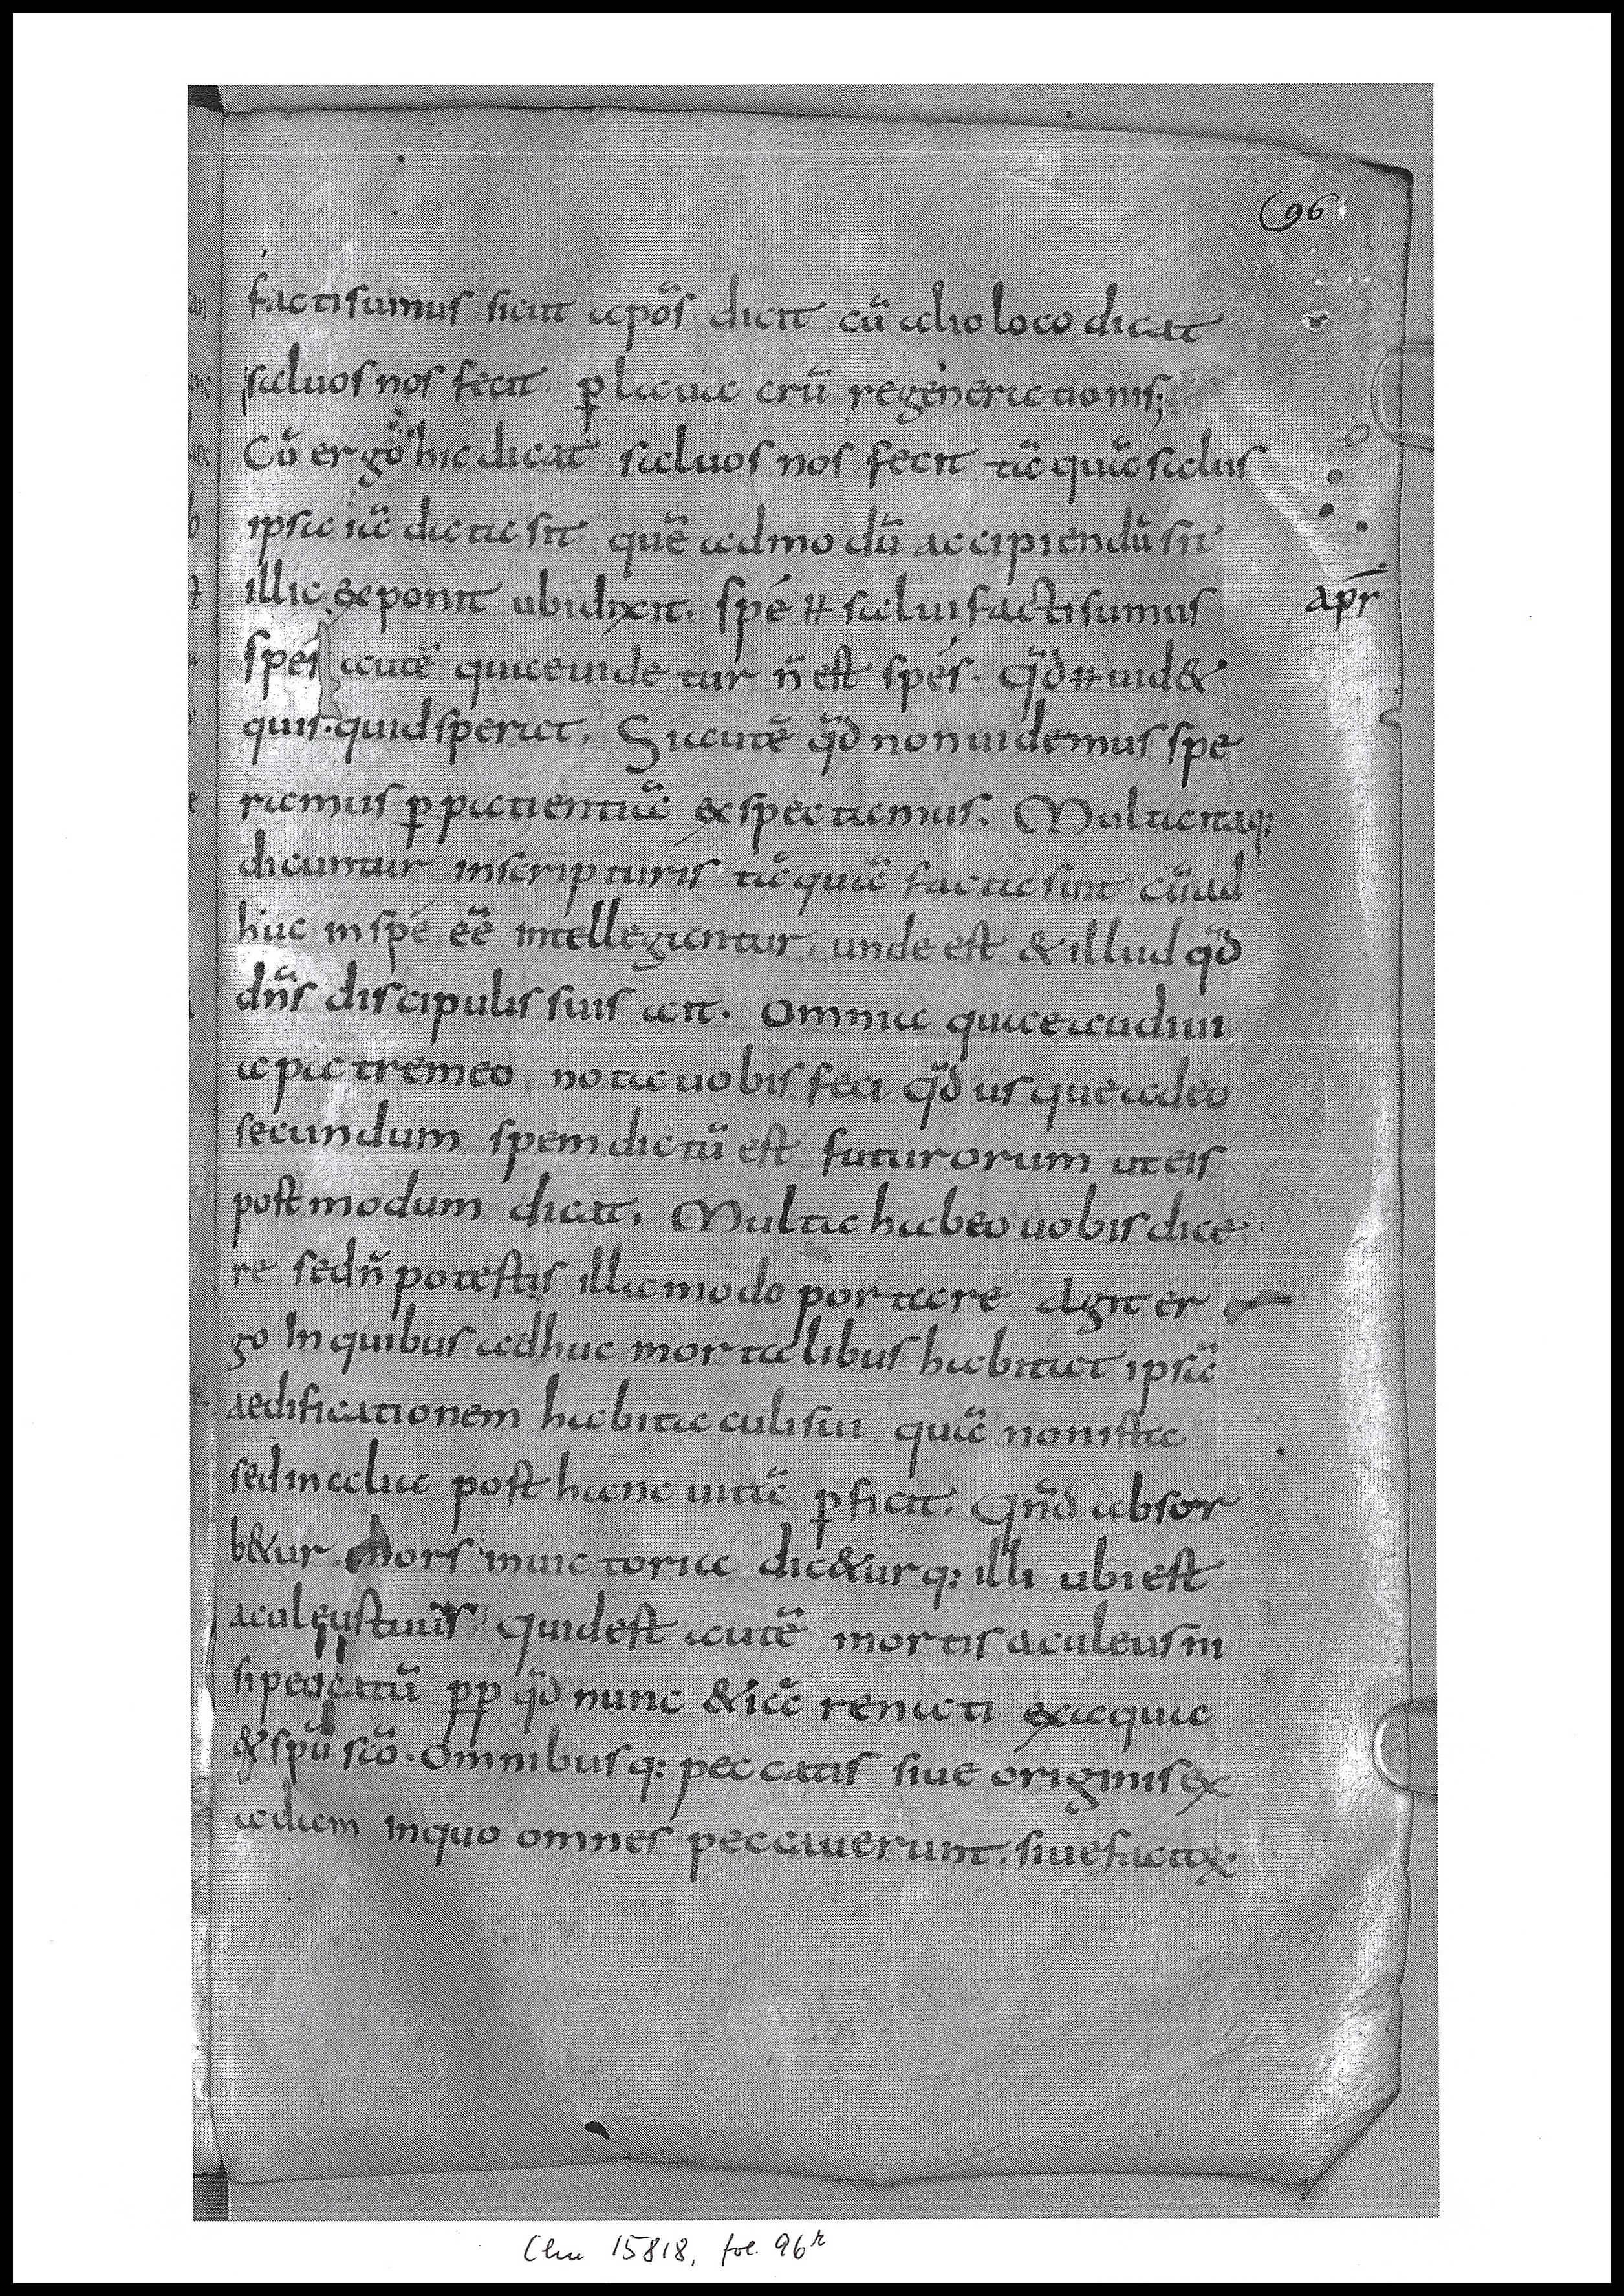 96
factisumus sicut apõs dicit cũ alio loco dicat
saluos nos fecit. ꝑ laua crũ regenerationis;
Cũ ergo hic dicat saluos nos fecit tã quã salus
ipsa iã dicta sit quẽ admodũ accipiendũ sit
illic exponit ubi dixit. spé ħ salui facti sumus
spes autẽ quae uidetur ñ est spés. qđ ħ uid&
quis. quid sperat. Si autẽ qđ non uidemus spe
ramus ꝑ patientiã exspectamus. Multa itaq:
dicuntur in scripturis tã quã facta sint cũ ad
huc in spé eẽ intelleguntur. unde est & illud qđ
dñs discipulis suis ait. Omnia quae audiui
a patre meo nota uobis feci qđ usque adeo
secundum spem dictũ est futurorum ut eis
postmodum dicat. Multa habeo uobis dice
re sed ñ potestis illa modo portare Agit er
go In quibus adhuc mortalibus habitat ipsã
aedificationem habitaculi sui quã non ista
sed in alia post hanc uitã ꝑficit. Qñd absor
b&ur mors in uictoria dic&urq: illi ubi est
aculeus tuus quid est autẽ mortis aculeus ni
si peccatũ ꝓp qđ nunc & iã renati ex aqua
& spũ scõ. Omnibusq: peccatis siue originis ex
adam in quo omnes peccauerunt. siue
apr̄
Clm 15818, fol. 96r